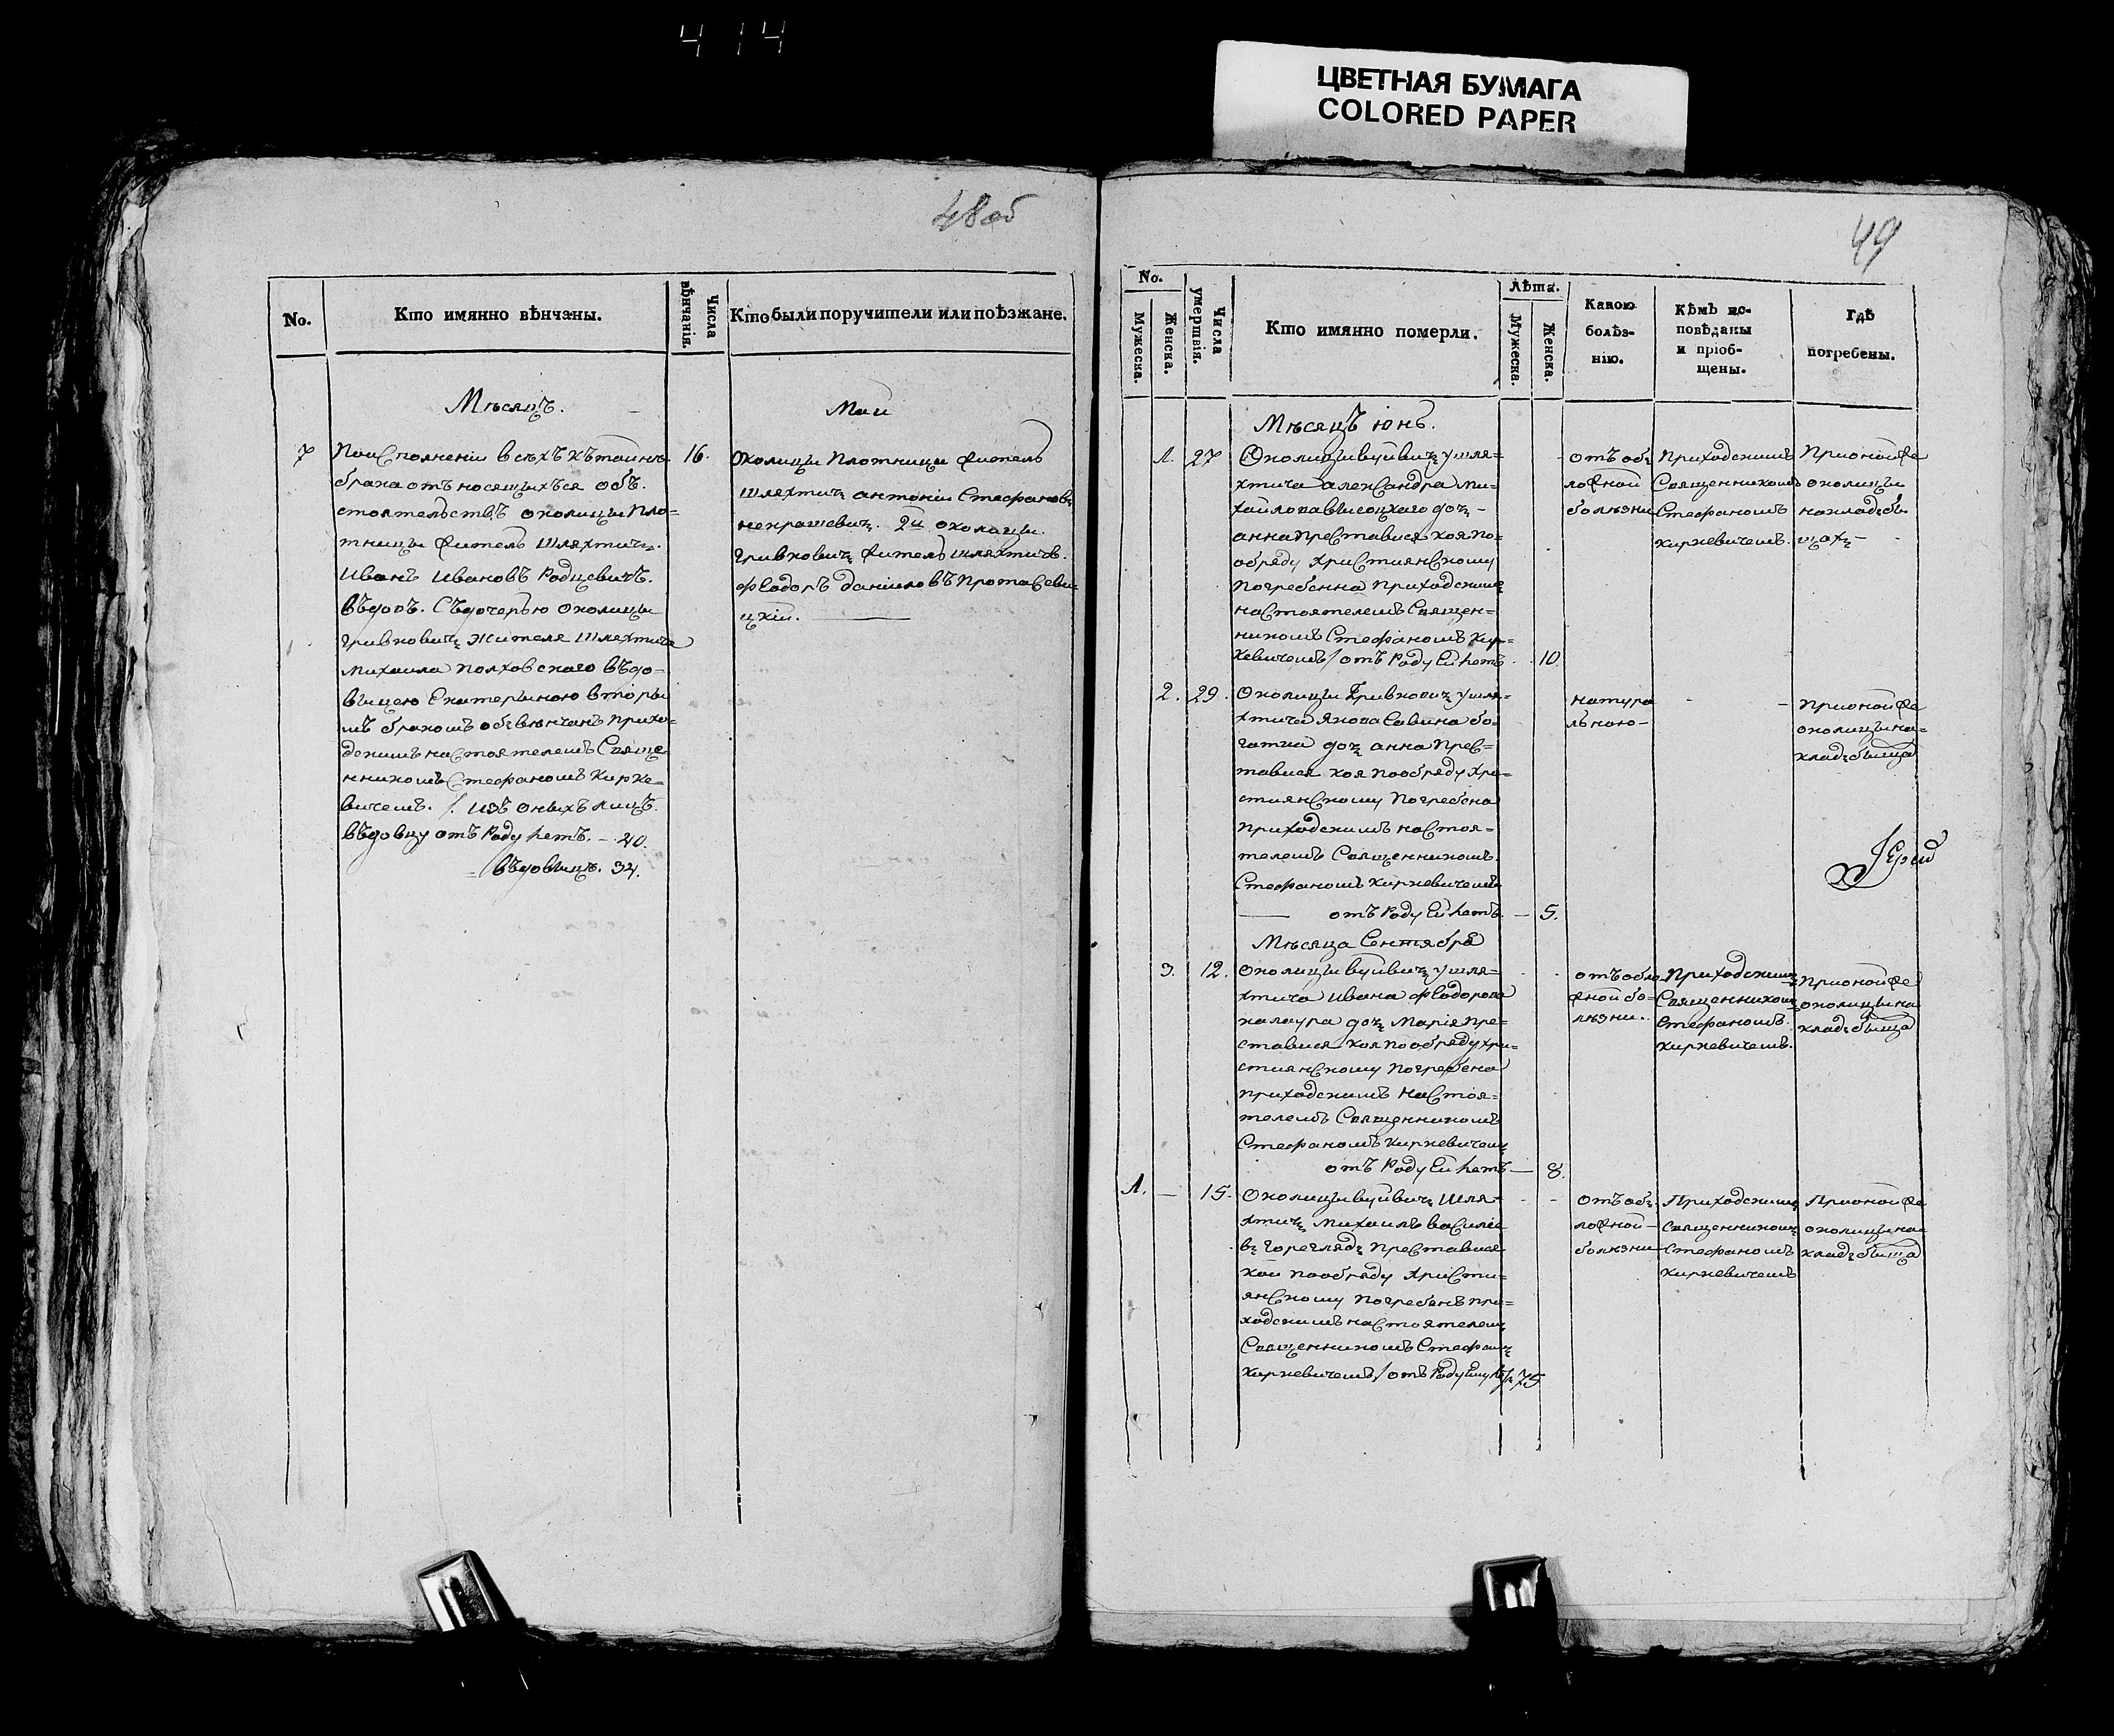 414
ЦВЕТНАЯ БУМАГА
COLORED PAPER
48об
No.
Кто имянно вѣнчаны.
Числа вѣнчанія.
Кто были поручители или поѣзжане.
Мѣсяцъ.
Маи
7
16.
По исполненіи всѣхъ къ таинъ
брака отъносящихъся объ
стоятельствъ околицы Пло=
тницы жителъ шляхтичъ
Иванъ Ивановъ Родцевичъ
въдовъ. Съ дочерью околицы
Гривковичъ жителя шляхтича
Михаила Полховскаго въдо-
вицею Екатериною вторы
мъ бракомъ обвѣнчанъ прихо=
дскимъ настоятелемъ Свяще
нникомъ Стефаномъ Кирке-
вичемъ. /. изъ оныхъ лицъ.
въдовцу отъ Роду летъ. — 40.
въдовицѣ. 34.
околицы Плотницы житель
шляхтичъ антоніи Стефановъ
некрашевичъ. 2й околицы
Гривковичъ жителъ шляхтичъ.
Феодоръ даніиловъ Протасеви
цкіи.
49
No.
Мужеска.
Женска.
Числа умертвія.
Кто имянно померли.
Лѣта.
Мужеска.
Женска.
Какою
болѣз-
нію.
Кѣмъ ис-
повѣданы
и пріоб-
щены.
Гдѣ
погребены.
Мѣсяцъ юнь.
1.
27
Околицы вуйвичъ у шля=
хтича александра Ми-
хаилова высоцкаго дочъ -
анна преставися коя по-
обряду християнскому
погребенна приходскимъ
настоятелемъ Священ=
никомъ Стефаномъ Кир=
кевичемъ / отъ Роду Ей летъ
10
отъ объ
ложной
болѣзни
Приходскимъ
Священникомъ
Стефаномъ
Киркевичемъ.
При оной же
околицы
на кладъби
щахъ
2.
29.
Околицы Гривковичъ у шля=
хтича Якова Савина бо-
гатки дочъ анна прес=
тавися коя по обряду хри=
стиянскому погребена
приходскимъ настоя=
телемъ Священникомъ.
Стефаномъ Киркевичемъ
отъ Роду Ей летъ. —
5.
натура
льною —
При оной же
околицы на=
кладъбища
Іерей
Мѣсяца Сентября
3.
12.
Околицы вуйвичъ у шля=
хтича Ивана Феодорова
калаура дочъ Марія пре=
ставися коя по обряду хри=
стиянскому погребена
приходскимъ настоя=
телемъ Священникомъ
Стефаномъ Киркевичемъ
отъ Роду Ей летъ —
8.
отъ обло
жной бо-
лѣзни.
Приходскимъ
Священникомъ
Стефаномъ
Киркевичемъ.
При оной же
околицы на
кладъбища
1.
15.
Околицы вуйвичъ шля-
хтичъ Михаилъ василіе
въ Горегляд преставися
кои по обряду христи=
янскому погребенъ при=
ходскимъ настоятелемъ
Священникомъ Стефаномъ
Киркевичемъ / отъ Роду Ему 75
отъ объ
ложной —
болѣзни
Приходскимъ
Священникомъ
Стефаномъ
Киркевичемъ
При оной же
околицы на
кладъбища